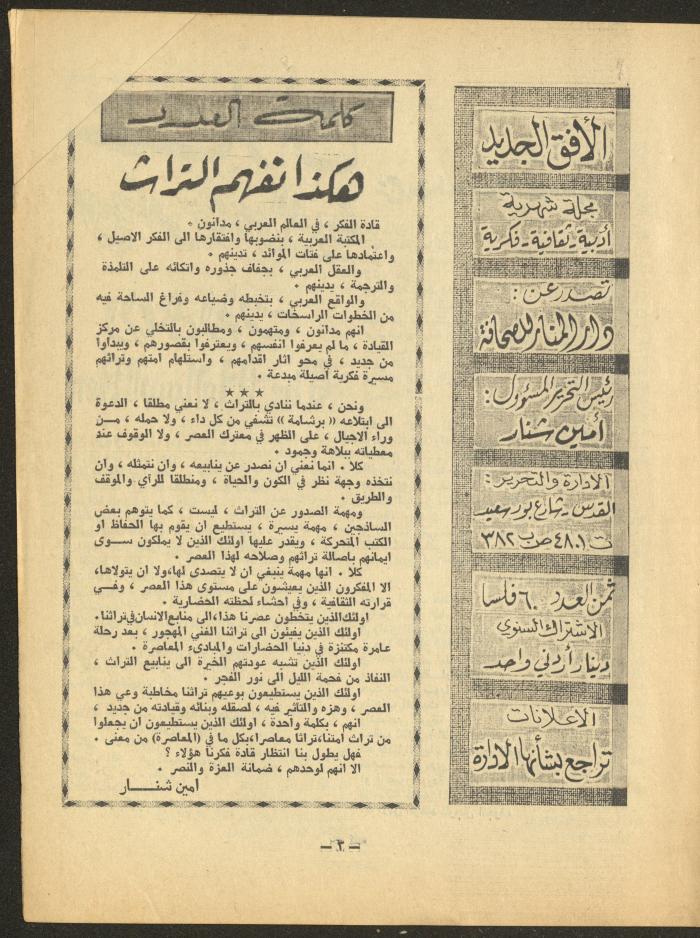 الأفق الجديد
مجلة شهرية
أدبية - ثقافية - فكرية
تصدر عن :
دار المنار للصحافة
رئيس التحرير المسؤول :
أمين شنار
الادارة والتحرير :
القدس - شارع بور سعيد
ت ٤٨٠١ ص ب ٣٨٢
ثمن العدد ٦٠ فلسا
الاشتراك السنوي
دينار أردني واحد
الاعلانات
تراجع بشأنها الادارة
كلمة العدد
هكذا نفهم التراث
قادة الفكر ، في العالم العربي ، مدانون .
المكتبة العربية ، بنضوبها وافتقارها الى الفكر الاصيل ،
واعتمادها على فتات الموائد ، تدينهم .
والعقل العربي ، بجفاف جذوره واتكائه على التلمذة
والترجمة ، يدينهم .
والواقع العربي ، بتخبطه وضياعه وفراغ الساحة فيه
من الخطوات الراسخات ، يدينهم .
انهم مدانون ، ومتهمون ، ومطالبون بالتخلي عن مركز
القيادة ، ما لم يعرفوا انفسهم ، ويعترفوا بقصورهم ، ويبدأوا
من جديد ، في محو اثار اقدامهم ، واستلهام امتهم وتراثهم
مسيرة فكرية أصيلة مبدعة .
★ ★ ★
ونحن ، عندما ننادي بالتراث ، لا نعني مطلقا ، الدعوة
الى ابتلاعه « برشامة » تشفي من كل داء ، ولا حمله ، مــن
وراء الاجيال ، على الظهر في معترك العصر ، ولا الوقوف عند
معطياته ببلاهة وجمود .
كلا . انما نعني ان نصدر عن ينابيعه ، وان نتمثله ، وان
نتخذه وجهة نظر في الكون والحياة ، ومنطلقا للرأي والموقف
والطريق .
ومهمة الصدور عن التراث ، ليست ، كما يتوهم بعض
الساذجين ، مهمة يسيرة ، يستطيع ان يقوم بها الحفاظ او
الكتب المتحركة ، ويقدر عليها اولئك الذين لا يملكون ســوى
ايمانهم باصالة تراثهم وصلاحه لهذا العصر .
كلا . انها مهمة ينبغي ان لا يتصدى لها،ولا ان يتولاها،
الا المفكرون الذين يعيشون على مستوى هذا العصر ، وفــي
قرارته الثقافية ، وفي احشاء لحظته الحضارية .
اولئك الذين يتخطون عصرنا هذا،الى منابع الانسان في تراثنا.
اولئك الذين يفيئون الى تراثنا الفني المهجور ، بعد رحلة
عامرة مكتنزة في دنيا الحضارات والمبادىء المعاصرة .
اولئك الذين تشبه عودتهم الخيرة الى ينابيع التراث ،
النفاذ من فحمة الليل الى نور الفجر .
اولئك الذين يستطيعون بوعيهم تراثنا مخاطبة وعي هذا
العصر ، وهزه والتاثير فيه ، لصقله وبنائه وقيادته من جديد ،
انهم ، بكلمة واحدة ، اولئك الذين يستطيعون ان يجعلوا
من تراث امتنا،تراثا معاصرا،بكل ما في (المعاصرة) من معنى .
فهل يطول بنا انتظار قادة فكرنا هؤلاء ؟
الا انهم لوحدهم ، ضمانة العزة والنصر .
أمين شنــار
ــ ٢ ــ